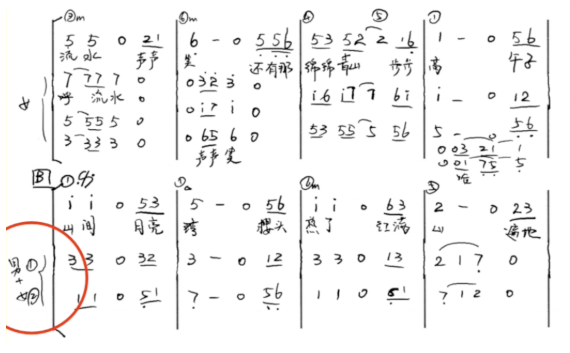 ②m ⑥m ④ ⑤ ①
5 5 0 21 6 - 0 556 53 52 2 16 1 - 0 56
流水 声声 笑 还有那 绵绵青山 步步 高 午子
7 77 7 0 0323 0 i6 i7 7 6i i - 0 12
呼 流水
5 55 5 0 0i7 i 0 53 55 5 56 5 - 56
3 33 3 0 065 6 0 003 21 1
女 声声笑 001 75 5
B ① ⑥m ③
i i 0 53 5 - 0 56 i i 0 63 2 - 0 23
山间 月亮 弯 腰头 燕了 红满 山 遍地
男① 33 0 32 3 - 0 12 3 3 0 13 2 1 7 0
+
女② 11 0 51 7 - 0 56 1 1 0 61 7 1 2 0